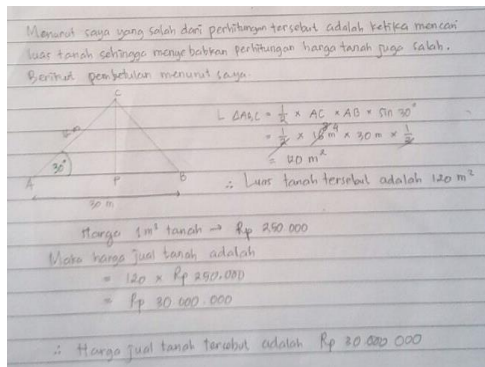 Menurut saya yang salah dari perhitungan tersebut adalah ketika mencari
luas tanah sehingga menyebabkan perhitungan harga tanah juga salah.
Berikut pembetulan menurut saya.
C
L ∆ABC = 1/2 × AC × AB × sin 30°
= 1/2 × 16 m × 30 m × 1/2
= 120 m²
30°
A P B
30 m
∴ Luas tanah tersebut adalah 120 m²
Harga 1m² tanah → Rp 250.000
Maka harga jual tanah adalah
= 120 × Rp 250.000
= Rp 30.000.000
∴ Harga jual tanah tersebut adalah Rp 30.000.000